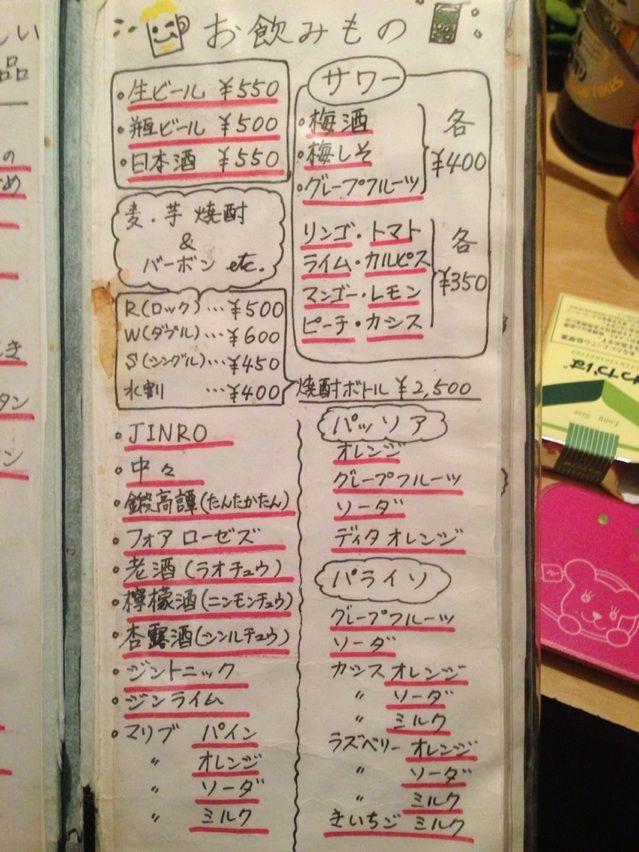 お飲みもの
・生ビール ¥550
・瓶ビール ¥500
・日本酒 ¥550
麦・芋焼酎
&
バーボン etc.
R(ロック)…¥500
W(ダブル)…¥600
S(シングル)…¥450
水割 …¥400
焼酎ボトル ¥2,500
サワー
・梅酒
・梅しそ
・グレープフルーツ
各
¥400
リンゴ・トマト
ライム・カルピス
マンゴー・レモン
ピーチ・カシス
各
¥350
・JINRO
・中々
・鍛高譚(たんたかたん)
・フォアローゼズ
・老酒(ラオチュウ)
・檸檬酒(ニンモンチュウ)
・杏露酒(シンルチュウ)
・ジントニック
・ジンライム
・マリブ パイン
〃 オレンジ
〃 ソーダ
〃 ミルク
パッソア
オレンジ
グレープフルーツ
ソーダ
ディタオレンジ
パライソ
グレープフルーツ
ソーダ
カシスオレンジ
〃 ソーダ
〃 ミルク
ラズベリー オレンジ
〃 ソーダ
〃 ミルク
きいちご ミルク
しい
品
の
め
き
タン
ン
わかば
Long Size